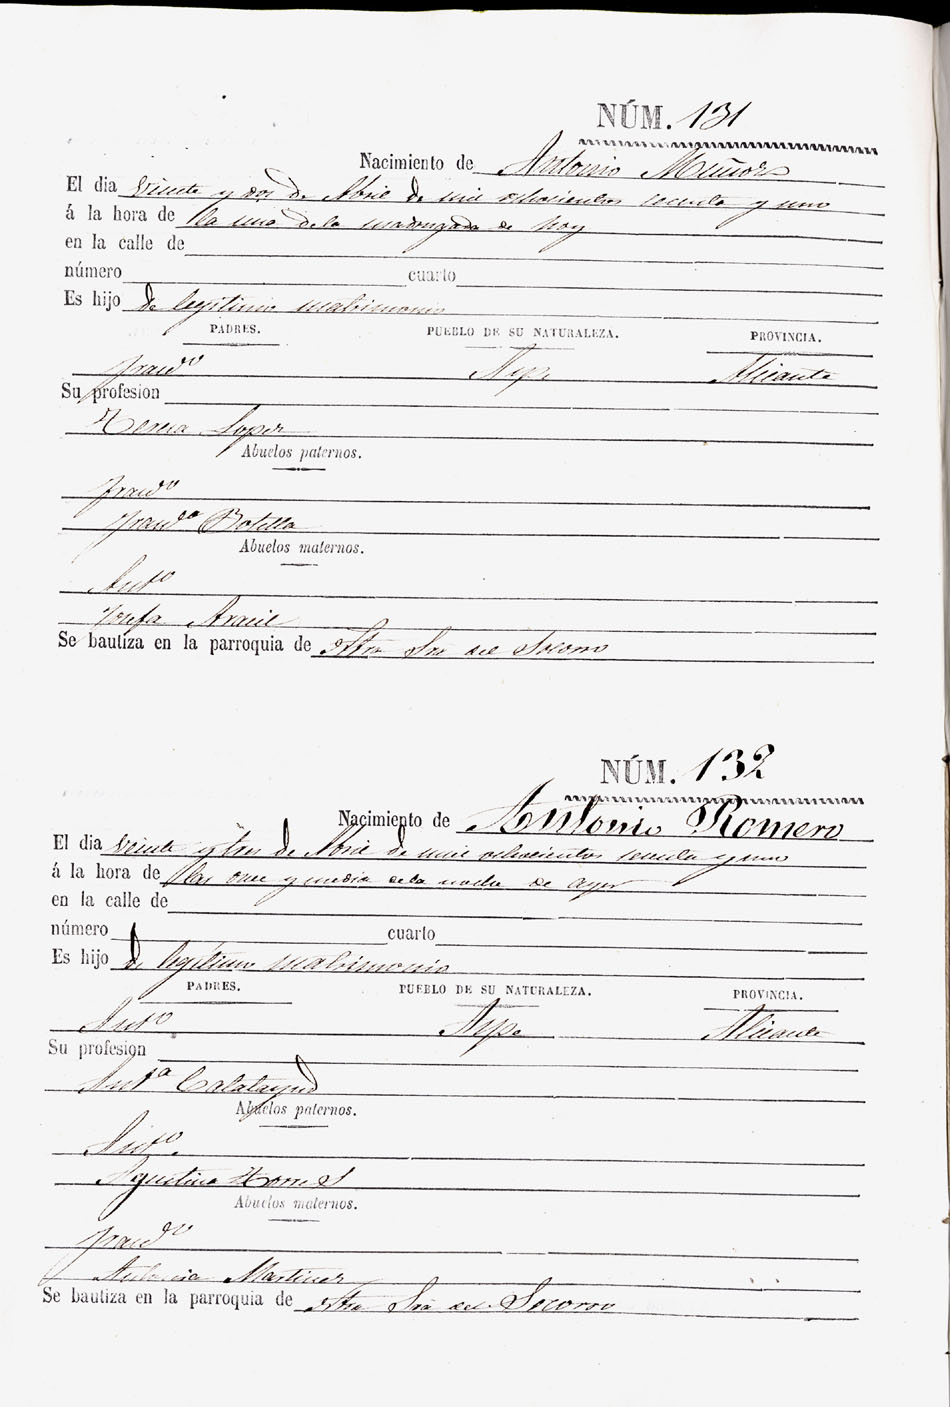 NÚM. 131
Nacimiento de Antonio Muñoz
El dia veinte y dos de Abril de mil ochocientos sesenta y uno
á la hora de la una de la madrugada de hoy
en la calle de
número cuarto
Es hijo de legitimo matrimonio
PADRES. PUEBLO DE SU NATURALEZA. PROVINCIA.
Franco Aspe Alicante
Su profesion
Teresa Lopez
Abuelos paternos.
Franco
Franca Botella
Abuelos maternos.
Anto
Josefa Aracil
Se bautiza en la parroquia de Ntra Sra del Socorro
NÚM. 132
Nacimiento de Antonio Romero
El dia veinte y tres de Abril de mil ochocientos sesenta y uno
á la hora de las once y media de la noche de ayer
en la calle de
número cuarto
Es hijo de legitimo matrimonio
PADRES. PUEBLO DE SU NATURALEZA. PROVINCIA.
Anto Aspe Alicante
Su profesion
Anta Calatayud
Abuelos paternos.
Anto
Agustina Torres
Abuelos maternos.
Franco
Antonia Martinez
Se bautiza en la parroquia de Ntra Sra del Socorro